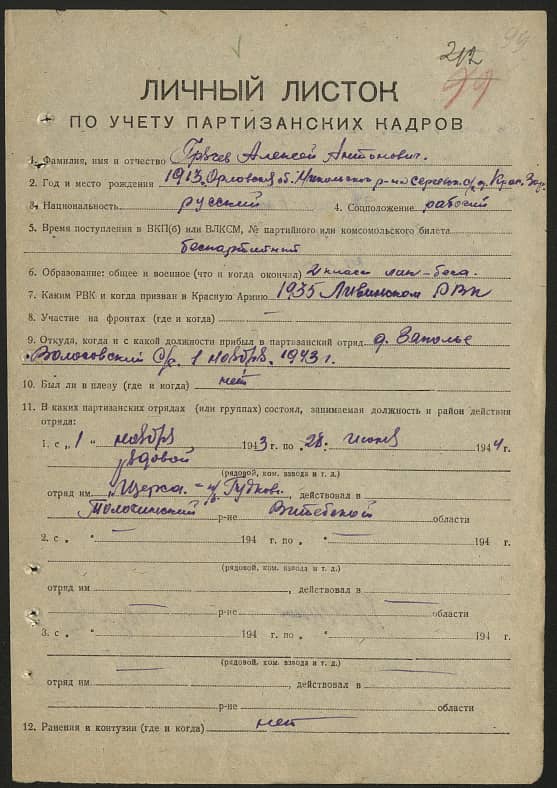 212
99
ЛИЧНЫЙ ЛИСТОК
ПО УЧЕТУ ПАРТИЗАНСКИХ КАДРОВ
1. Фамилия, имя и отчество Грачев Алексей Антонович.
2. Год и место рождения 1913, Орловская об. р-н д. Крас. Зор.
3. Национальность русский 4. Соцположение рабочий
5. Время поступления в ВКП(б) или ВЛКСМ, № партийного или комсомольского билета
беспартийный
6. Образование: общее и военное (что и когда окончил) 2 класса
7. Каким РВК и когда призван в Красную Армию 1935 Ливинском РВК
8. Участие на фронтах (где и когда)
9. Откуда, когда и с какой должности прибыл в партизанский отряд д. Заполье
Волосовский С/с. 1 ноября. 1943 г.
10. Был ли в плену (где и когда) нет
11. В каких партизанских отрядах (или группах) состоял, занимаемая должность и район действия
отряда:
1. с „ 1 “ ноября 1943 г. по „ 28. июня 1944 г.
рядовой
(рядовой, ком. взвода и т. д.)
отряд им. Щорса - Гудков. , действовал в
Толочинский р-не Витебской области
2. с „ “ 194 г. по „ “ 194 г.
(рядовой, ком. взвода и т. д.)
отряд им , действовал в
р-не области
3. с „ “ 194 г. по „ “ 194 г.
(рядовой, ком. взвода и т. д.)
отряд им. , действовал в
р-не области
12. Ранения и контузии (где и когда) нет